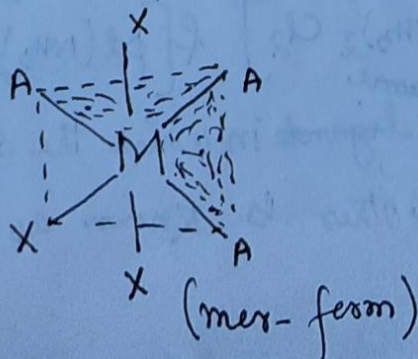 X
A A
M
X A
X
(mer-form)